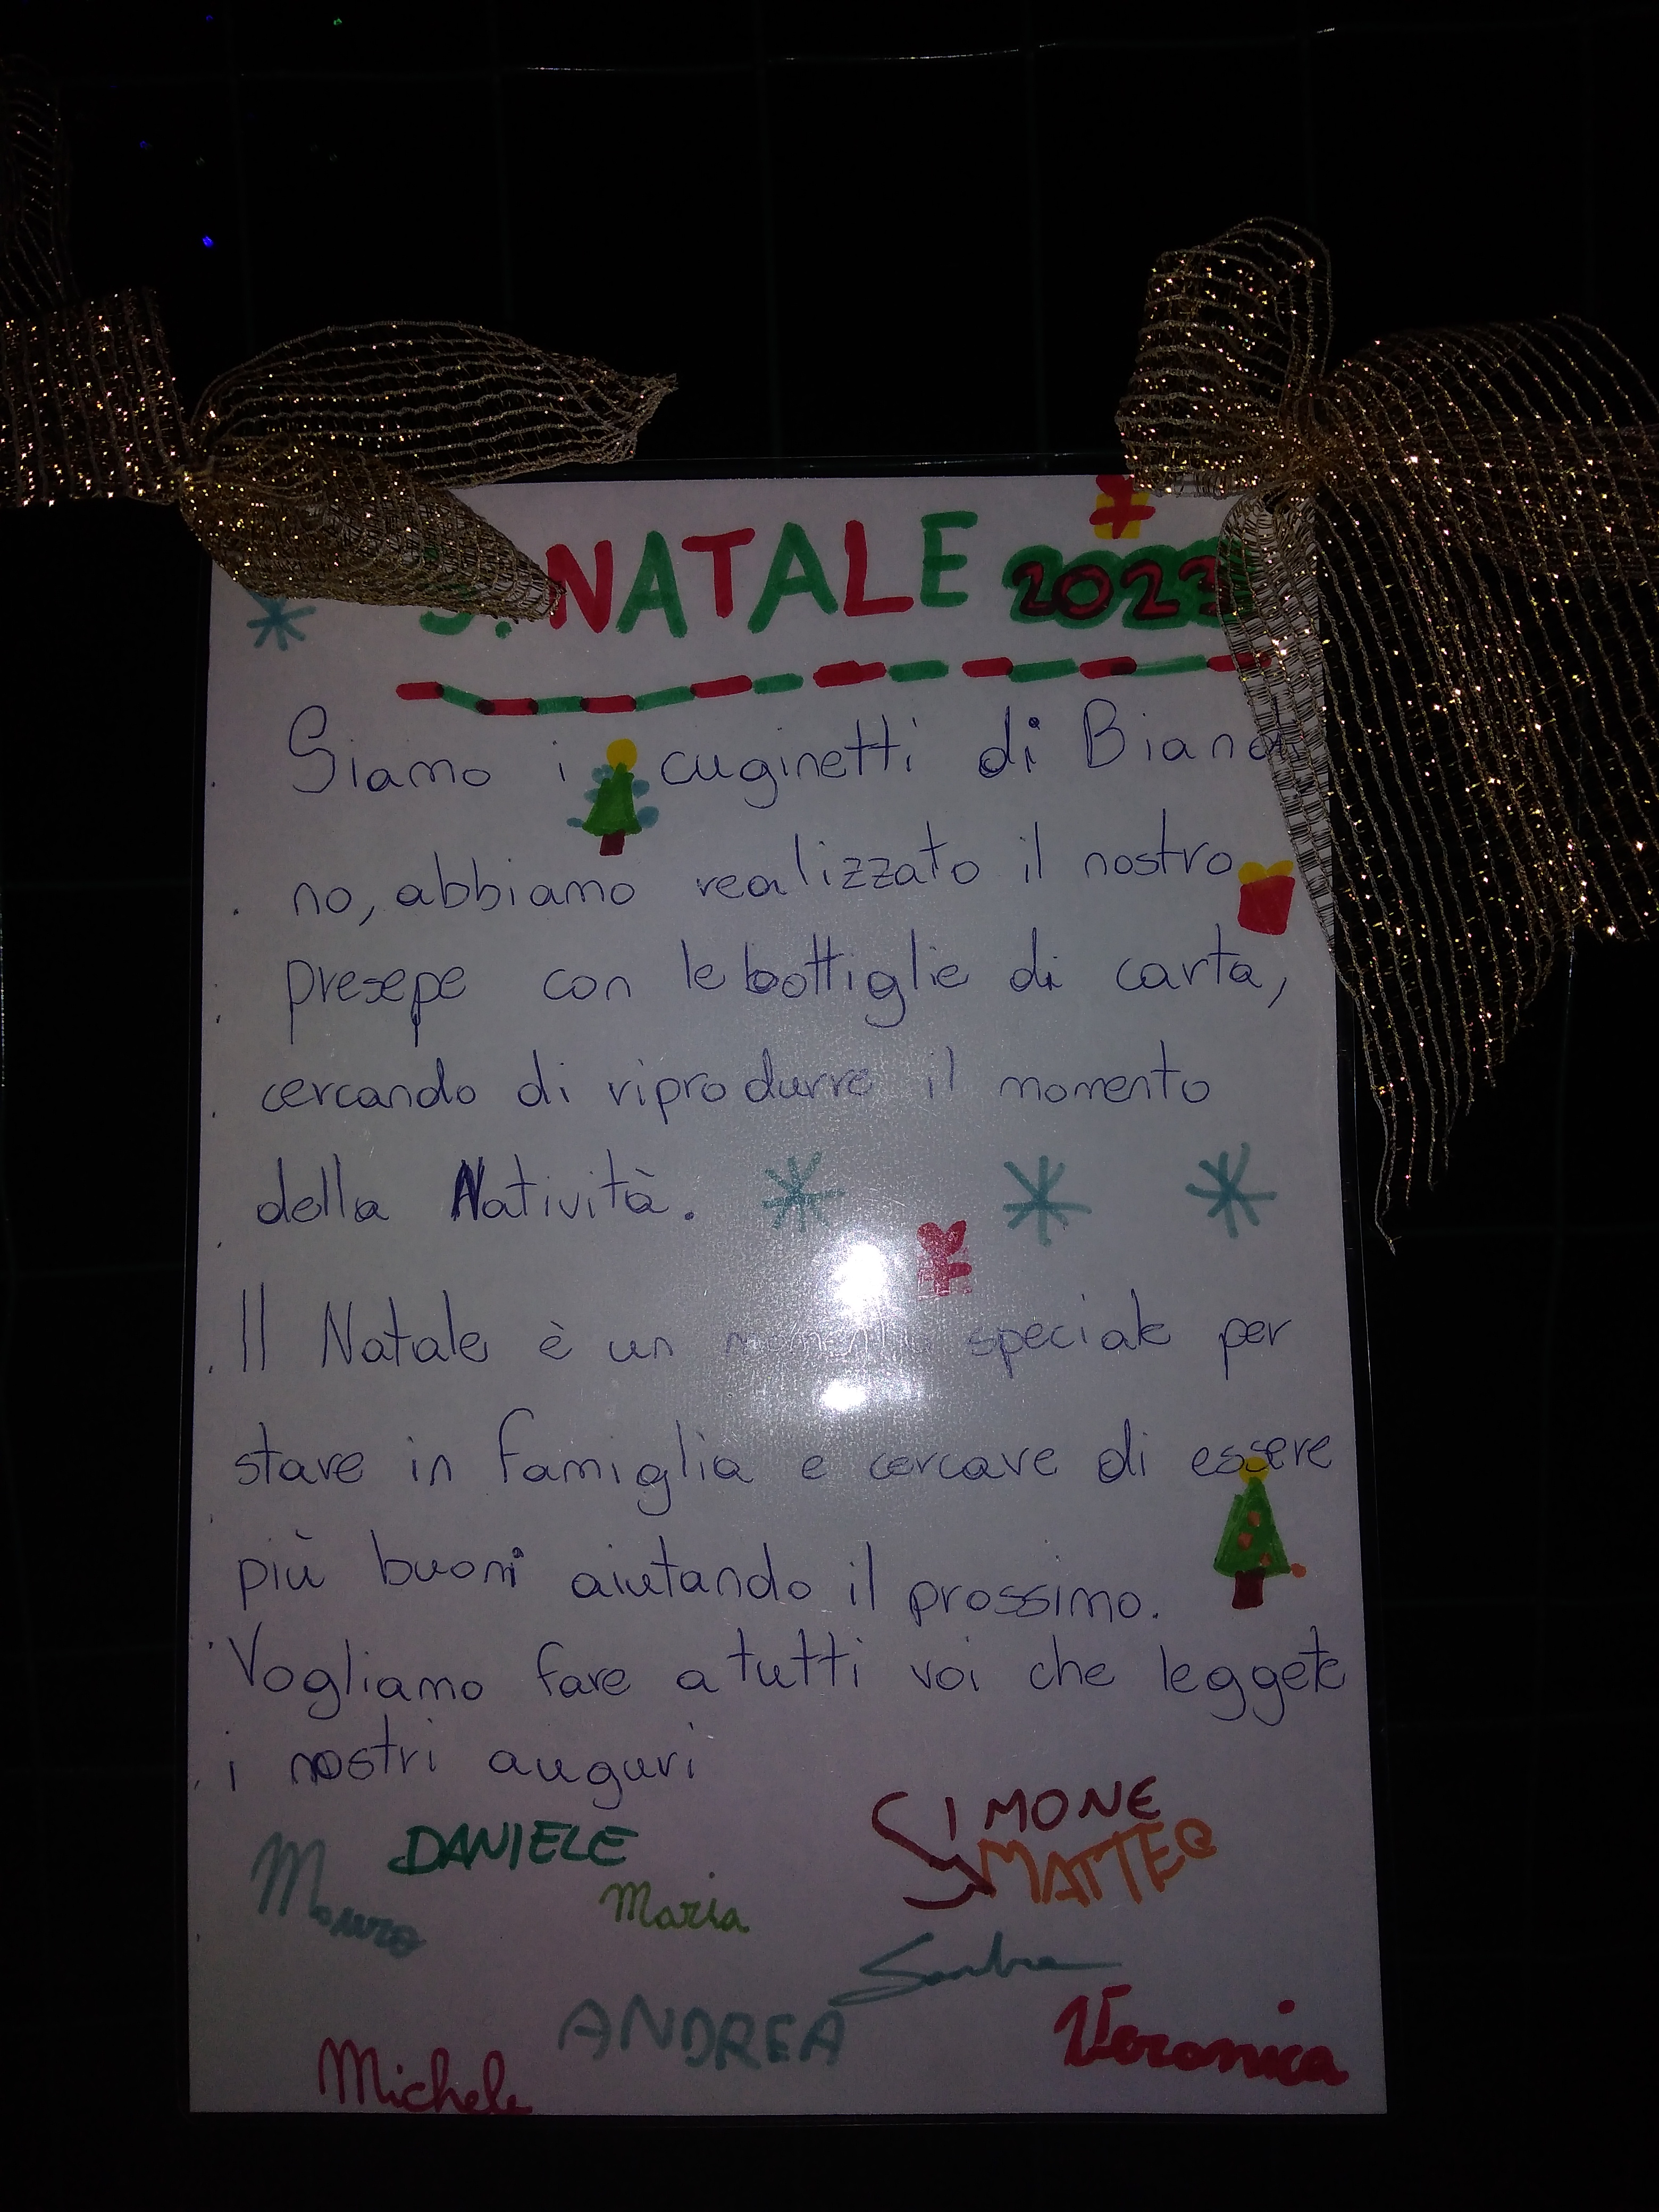 S. NATALE 2023
Siamo i cuginetti di Bianca
no, abbiamo realizzato il nostro
presepe con le bottiglie di carta,
cercando di riprodurre il momento
della Natività.
Il Natale è un momento speciale per
stare in famiglia e cercare di essere
più buoni aiutando il prossimo.
Vogliamo fare a tutti voi che leggete
i nostri auguri
SIMONE
DANIELE
MATTEO
Mauro
Maria
Sandra
ANDREA
Veronica
Michele